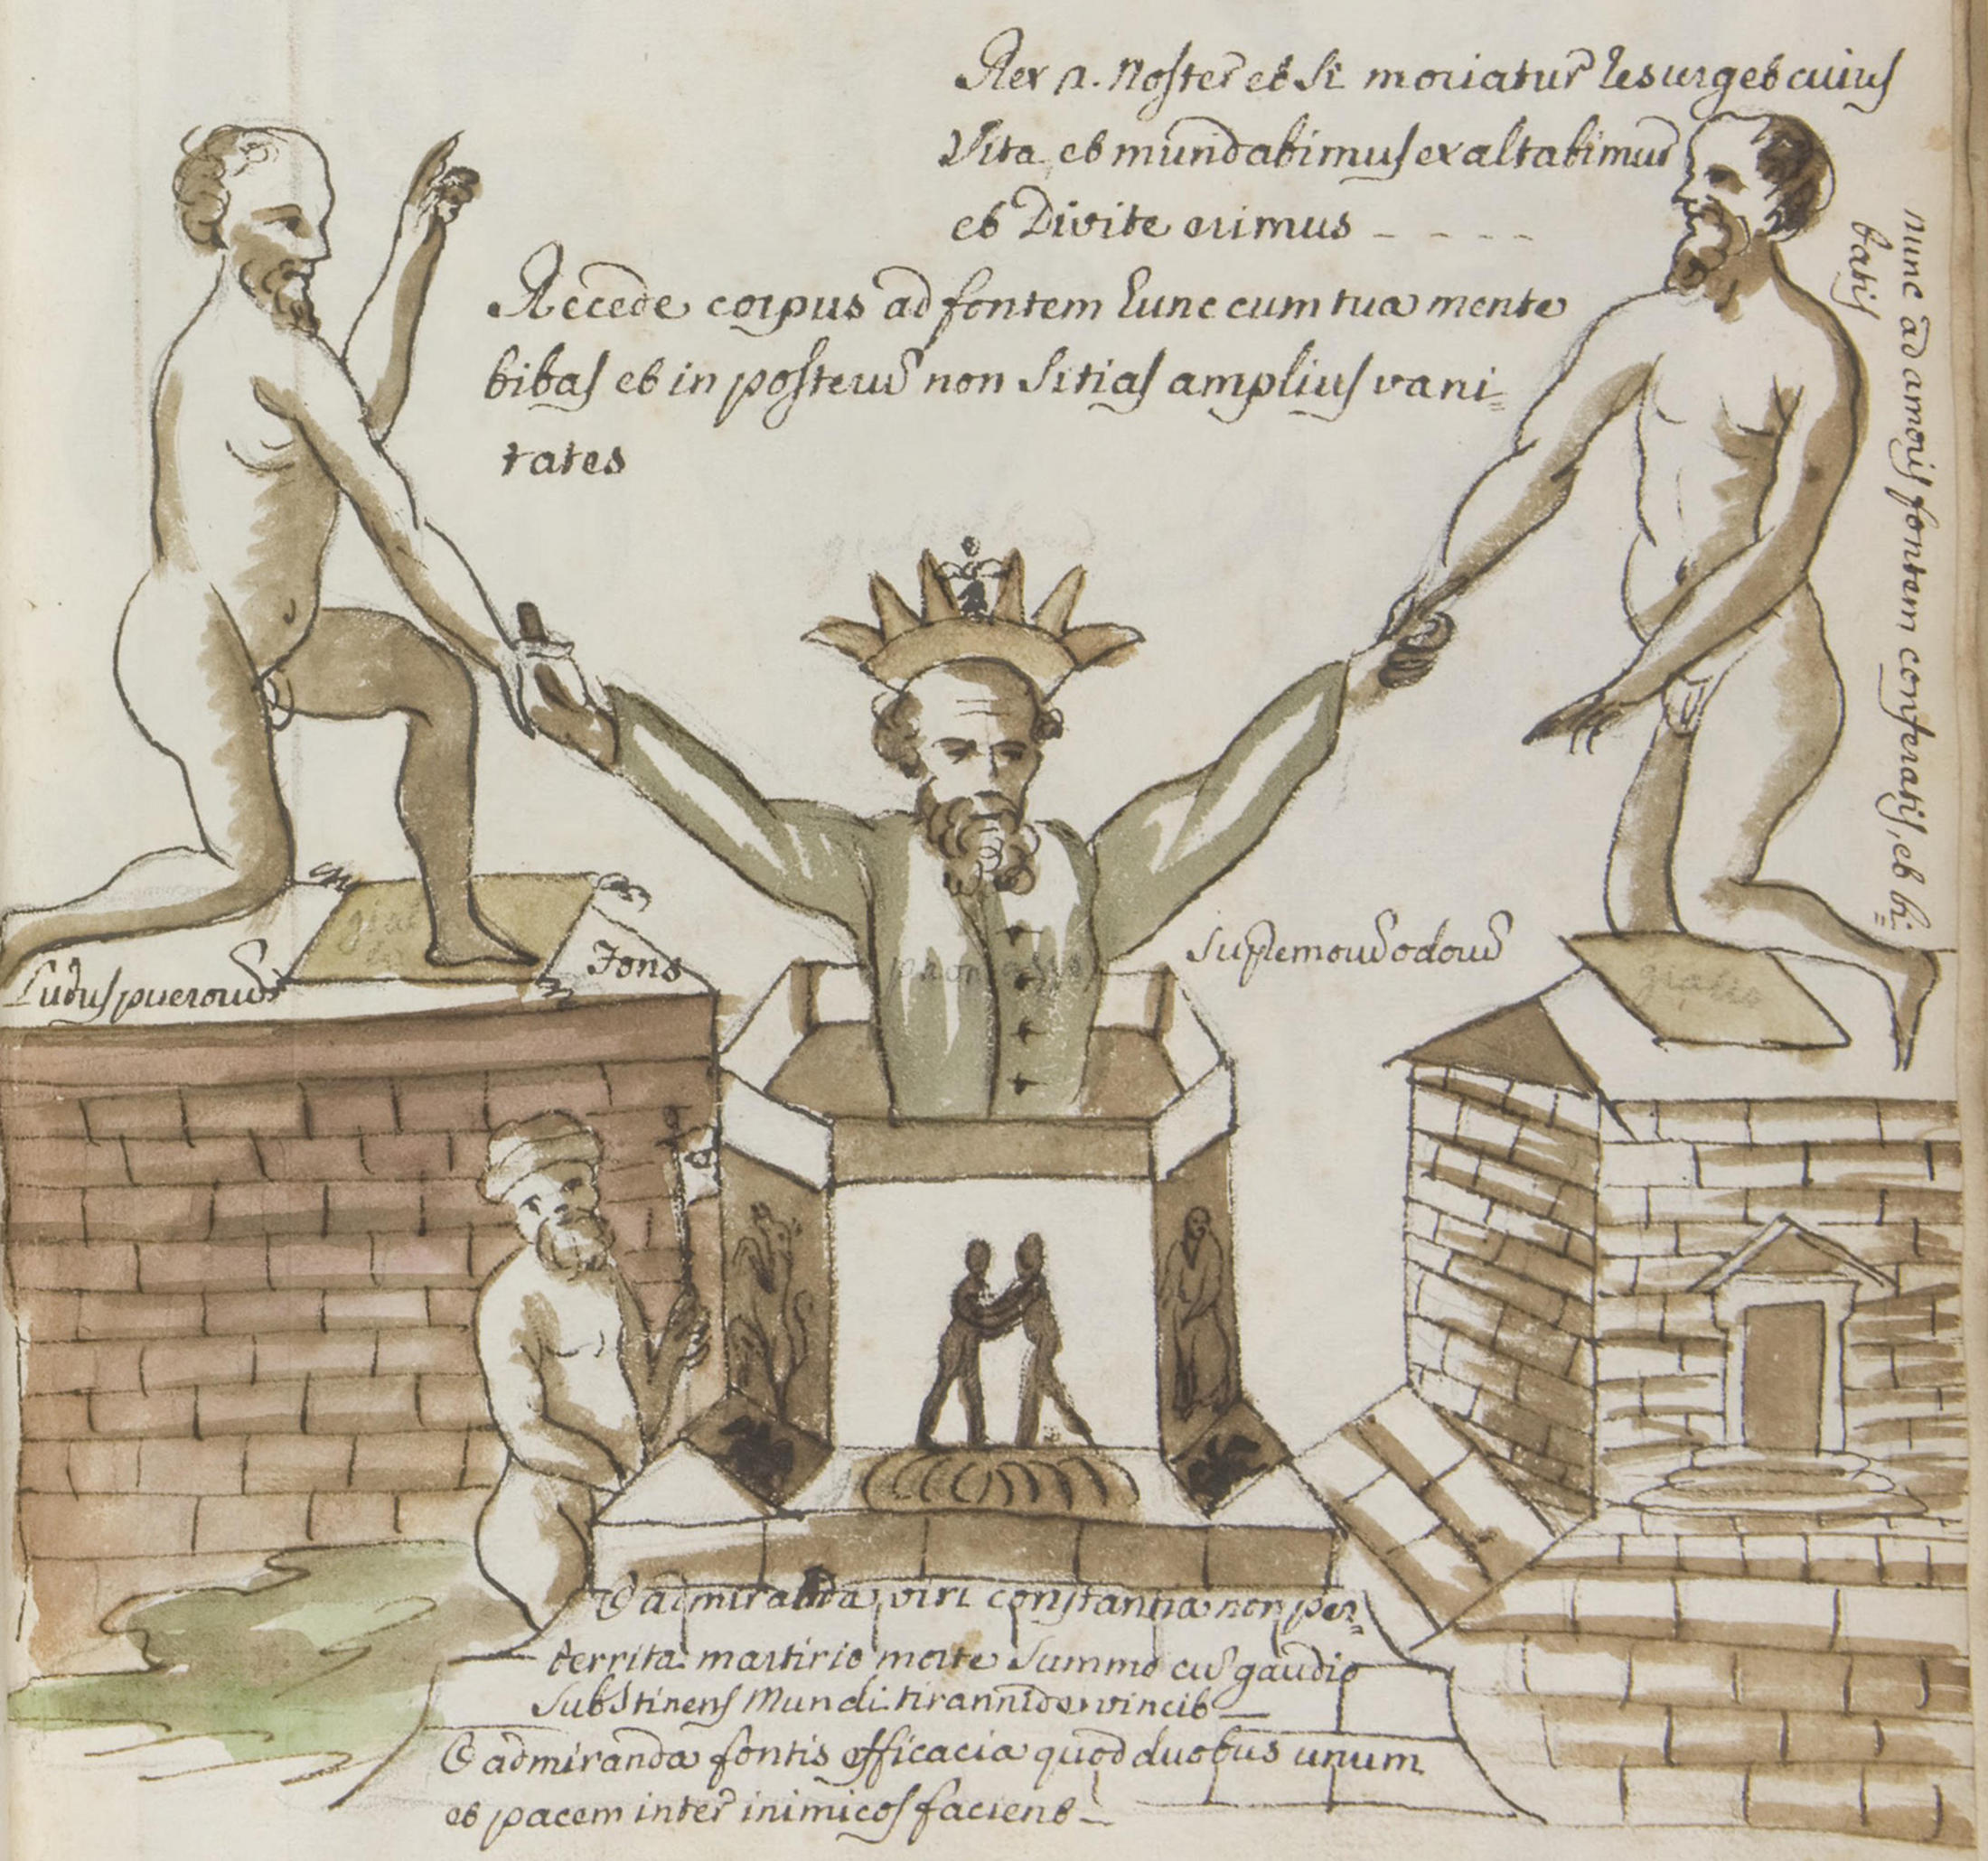 Rex n. Noster et si moriatur resurget cuius
vita et mundabimus exaltabimus
et Divite erimus - - - -
Accede corpus ad fontem tunc cum tua mente
bibas et in posterũ non sitias amplius vani=
tates
nunc ad amoris fontem conferatis, et bi=
batis
Ludus puerorũ
Fons
suplemorũ odorũ
giallo
O admiranda viri constantia non per=
territa martirio morte summo cũ gaudio
substinens Mundi tirannide vincit —
O admiranda fontis efficacia quod duobus unum
et pacem inter inimicos facient —